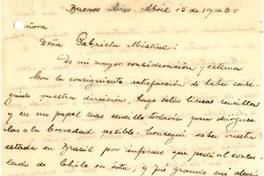 Buenos Aires, Abril 15 de 1943.-
Señora
Doña Gabriela Mistral:
De mi mayor consideración y estima
Con la consiguiente satisfacción de haber conse-
guido vuestra dirección, hago estas líneas sencillas
y en un papel mas sencillo todavía para dirigír-
selas a la brevedad posible. Conseguí saber vuestra
estada en Brasil por informe que pedí al consu-
lado de Chile en ésta, y fué grande mi